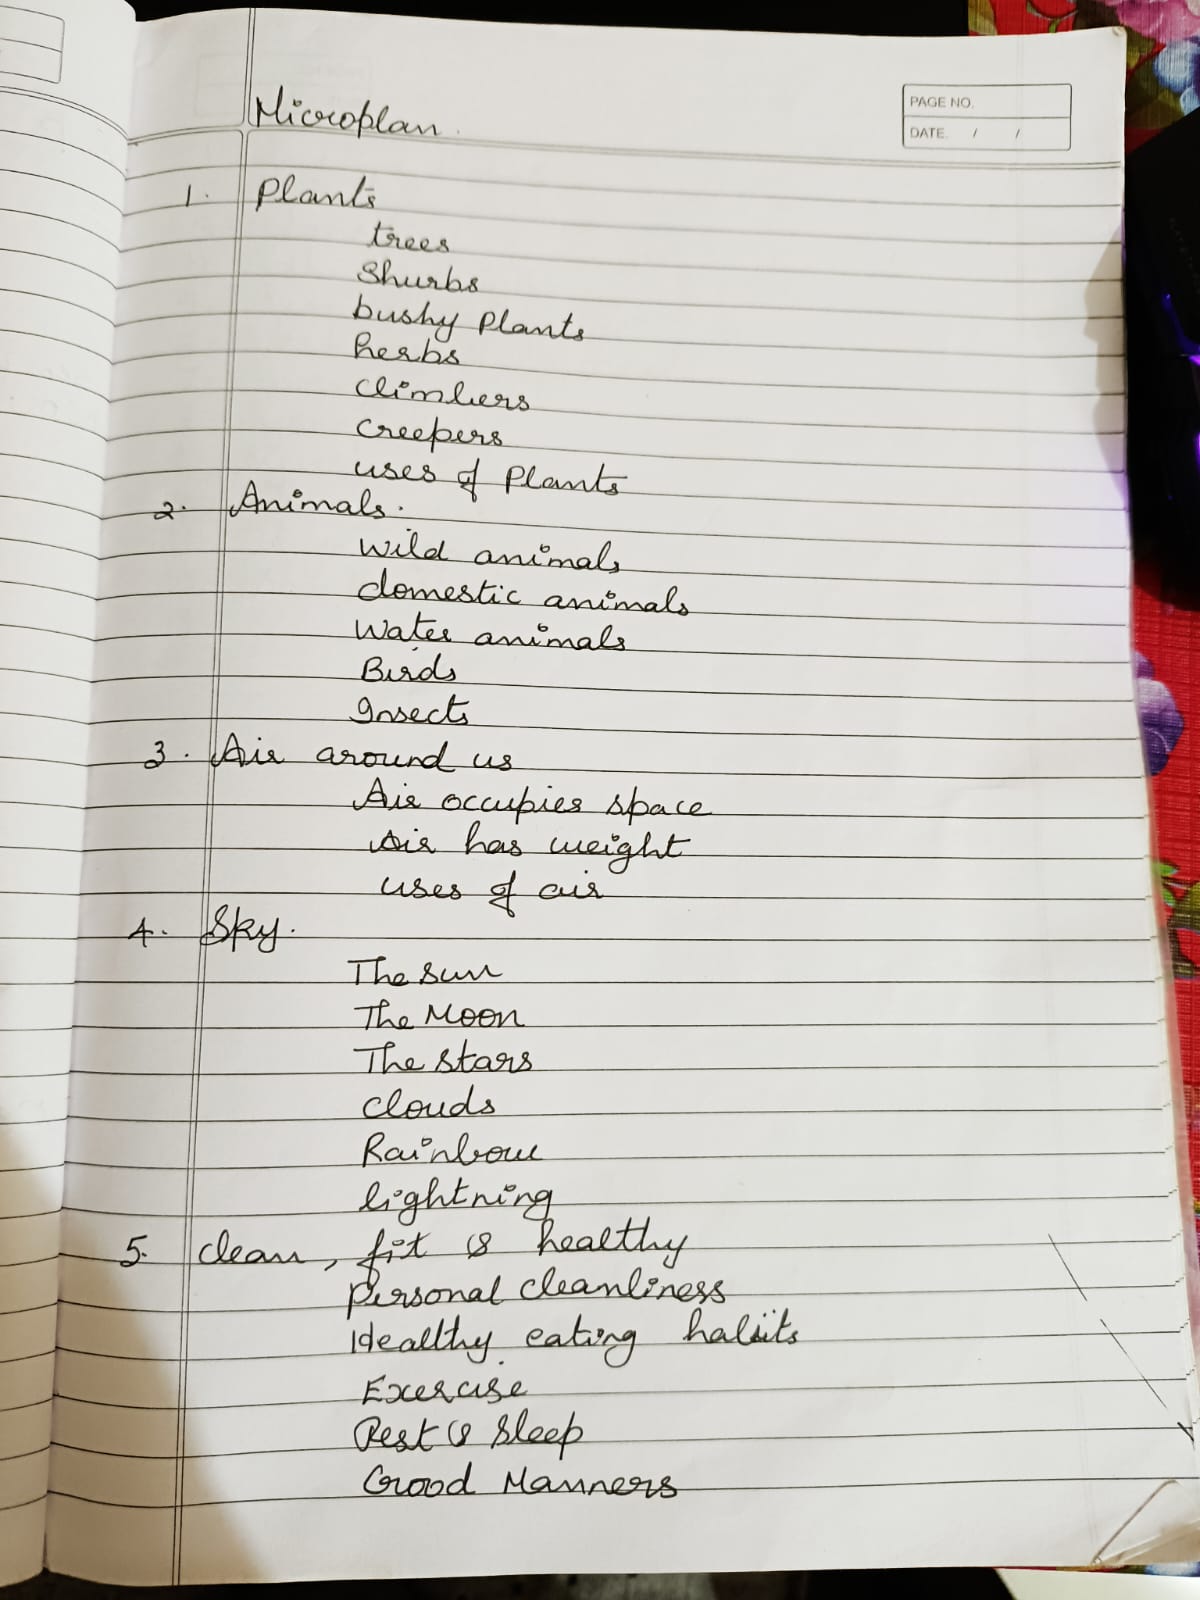 Microplan.
PAGE NO.
DATE. / /
1. Plants
trees
Shurbs
bushy Plants
herbs
climbers
creepers
uses of Plants
2. Animals.
Wild animals
domestic animals
Water animals
Birds
Insects
3. Air around us
Air occupies space
Air has weight
uses of air
4. Sky.
The Sun
The Moon
The stars
clouds
Rainbow
lightning
5. clean, fit & healthy
Personal cleanliness
Healthy eating habits
Exercise
Rest & Sleep
Good Manners